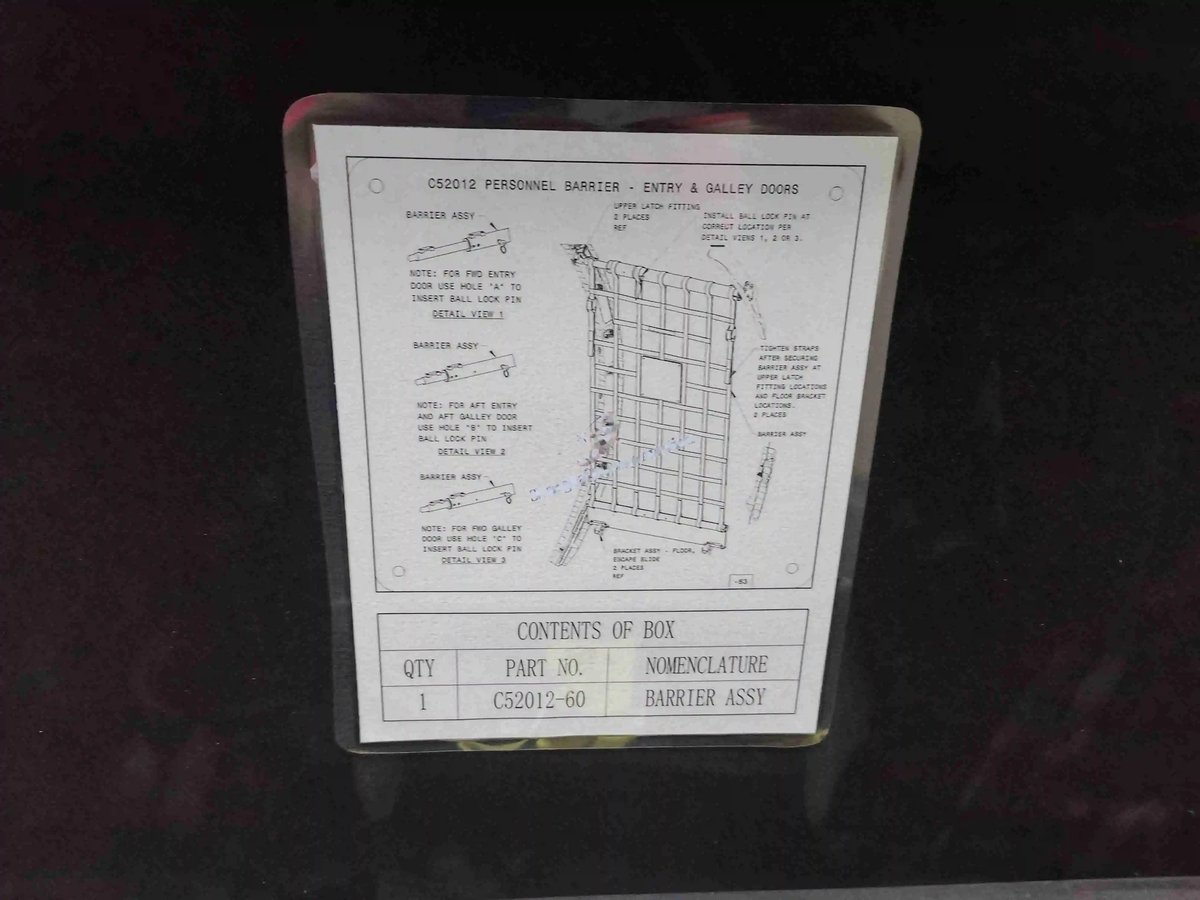 C52012 PERSONNEL BARRIER - ENTRY & GALLEY DOORS
BARRIER ASSY
NOTE: FOR FWD ENTRY
DOOR USE HOLE "A" TO
INSERT BALL LOCK PIN
DETAIL VIEW 1
BARRIER ASSY
NOTE: FOR AFT ENTRY
AND AFT GALLEY DOOR
USE HOLE "B" TO INSERT
BALL LOCK PIN
DETAIL VIEW 2
BARRIER ASSY
NOTE: FOR FWD GALLEY
DOOR USE HOLE "C" TO
INSERT BALL LOCK PIN
DETAIL VIEW 3
UPPER LATCH FITTING
2 PLACES
REF
INSTALL BALL LOCK PIN AT
CORRECT LOCATION PER
DETAIL VIEWS 1, 2 OR 3.
TIGHTEN STRAPS
AFTER SECURING
BARRIER ASSY AT
UPPER LATCH
FITTING LOCATIONS
AND FLOOR BRACKET
LOCATIONS.
2 PLACES
BARRIER ASSY
BRACKET ASSY - FLOOR,
ESCAPE SLIDE
2 PLACES
REF
-63
CONTENTS OF BOX
QTY PART NO. NOMENCLATURE
1 C52012-60 BARRIER ASSY